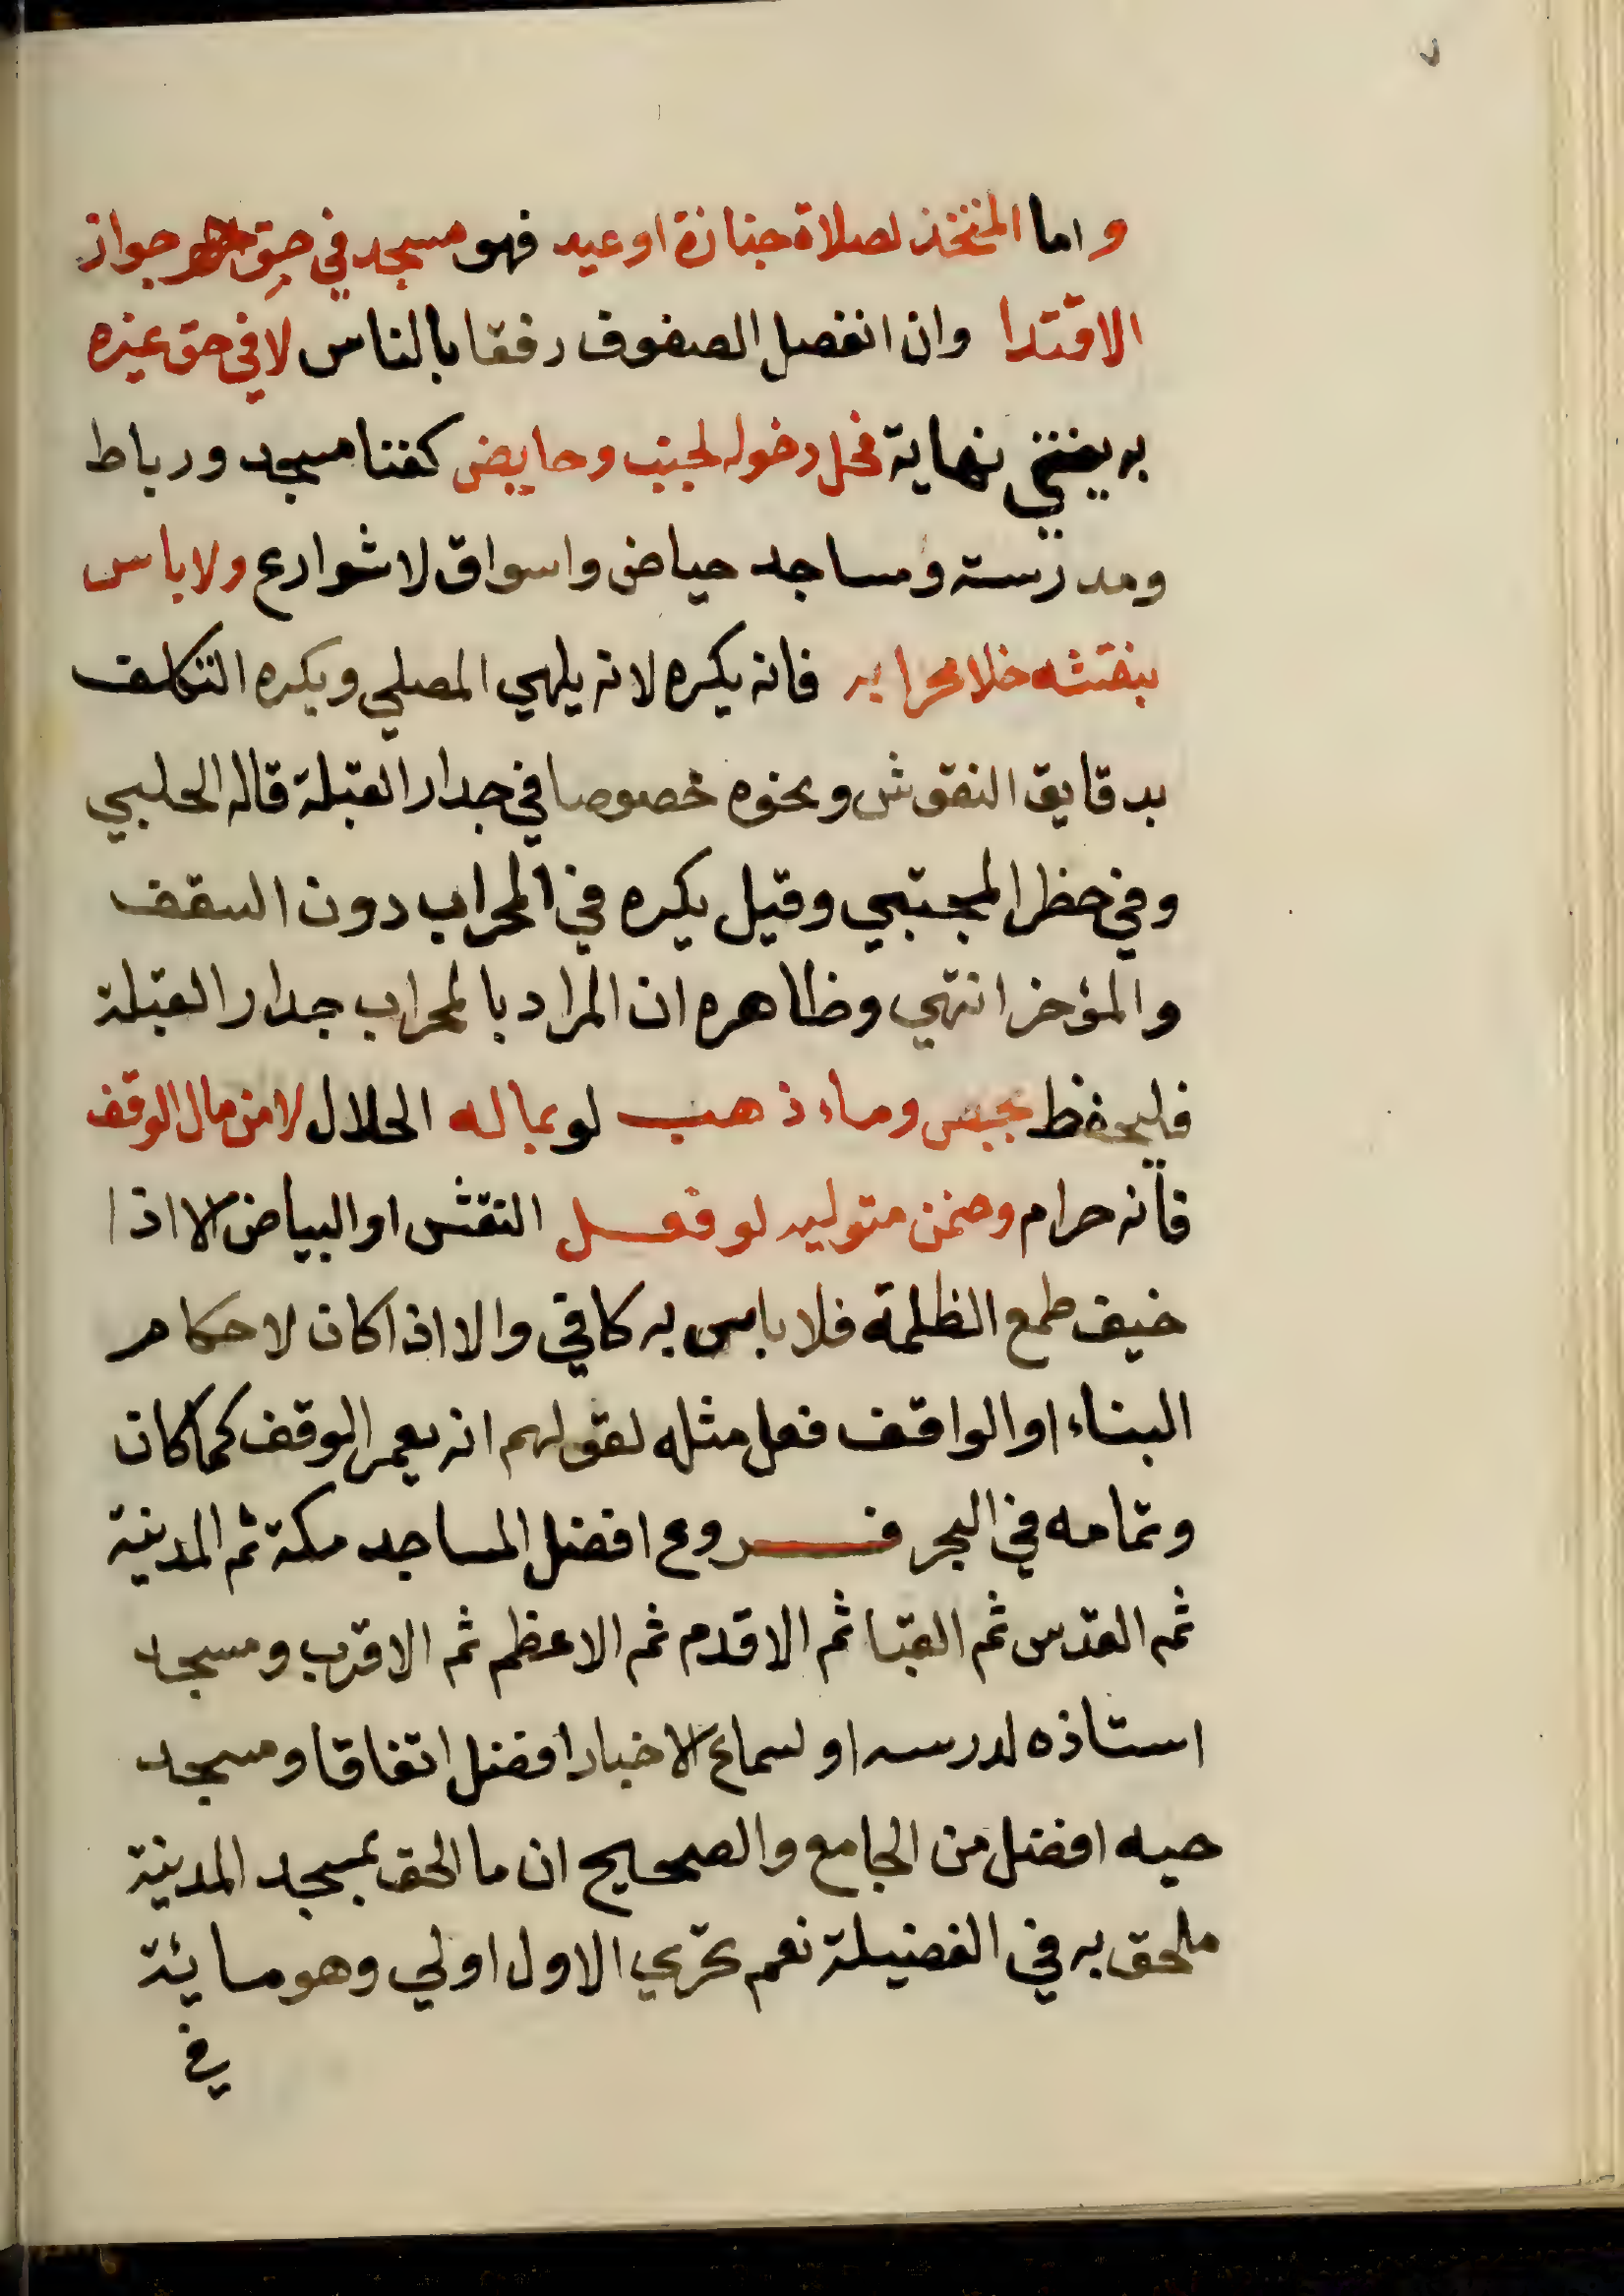 واما المتخذ لصلاة جنازة او عيد فهو مسجد في حق جواز
الاقتدا وان انفصل الصفوف رفقا بالناس لا في حق غيره
به يفتي نهاية فحل دخوله لجنب وحايض كفنا مسجد ورباط
ومدرسة ومساجد حياض واسواق لا شوارع ولا باس
بنقشه خلا محرابه فانه يكره لانه يلهي المصلي ويكره التكلف
بدقايق النقوش ونحوه خصوصا في جدار القبلة قاله الحلبي
وفي حظر المجتبي وقيل يكره في المحراب دون السقف
والمؤخر انتهي وظاهره ان المراد بالمحراب جدار القبلة
فليحفظ بجص وماء ذهب لو بماله الحلال لا من مال الوقف
فانه حرام وضمن متوليه لو فعل النقش او البياض الا اذا
خيف طمع الظلمة فلا باس به كافي والا اذا كان لاحكام
البناء او الواقف فعل مثله لقولهم انه يعمر الوقف كما كان
وتمامه في البحر فروع افضل المساجد مكة ثم المدينة
ثم القدس ثم القبا ثم الاقدم ثم الاعظم ثم الاقرب ومسجد
استاذه لدرسه او لسماع الاخبار افضل اتفاقا ومسجد
حيه افضل من الجامع والصحيح ان ما الحق بمسجد المدينة
ملحق به في الفضيلة نعم تحري الاول اولي وهو مائة
في